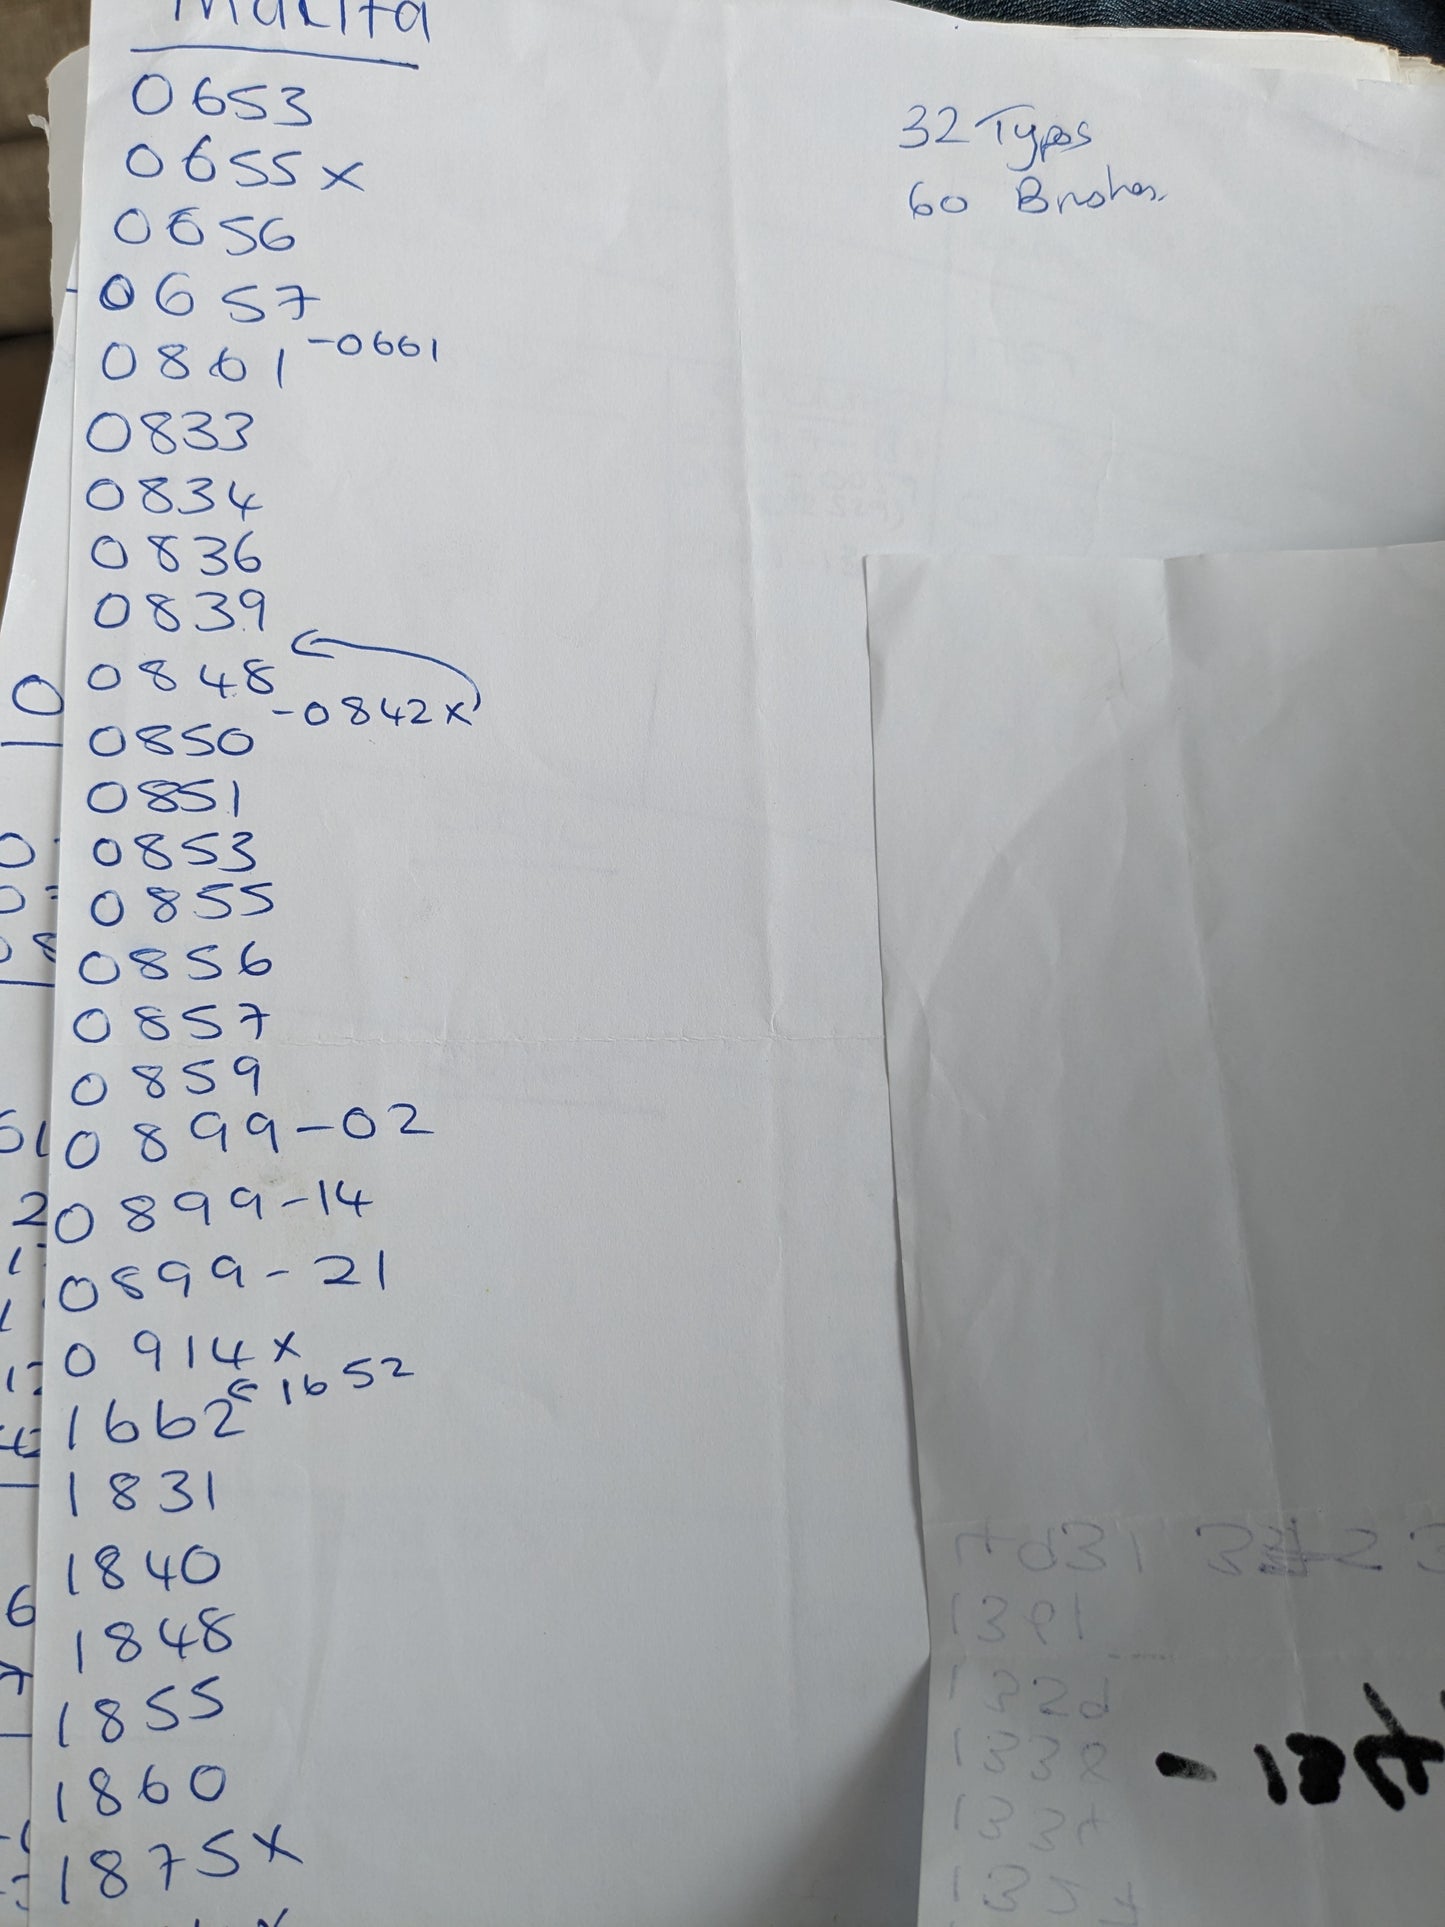 Makita
0653
0655x
0656
0657
0801 -0661
0833
0834
0836
0839
0848
-0842x
0850
0851
0853
0855
0856
0857
0859
0899-02
0899-14
0899-21
0914x
1652
1662
1831
1840
1848
1855
1860
1875x
32 Types
60 Brushes.